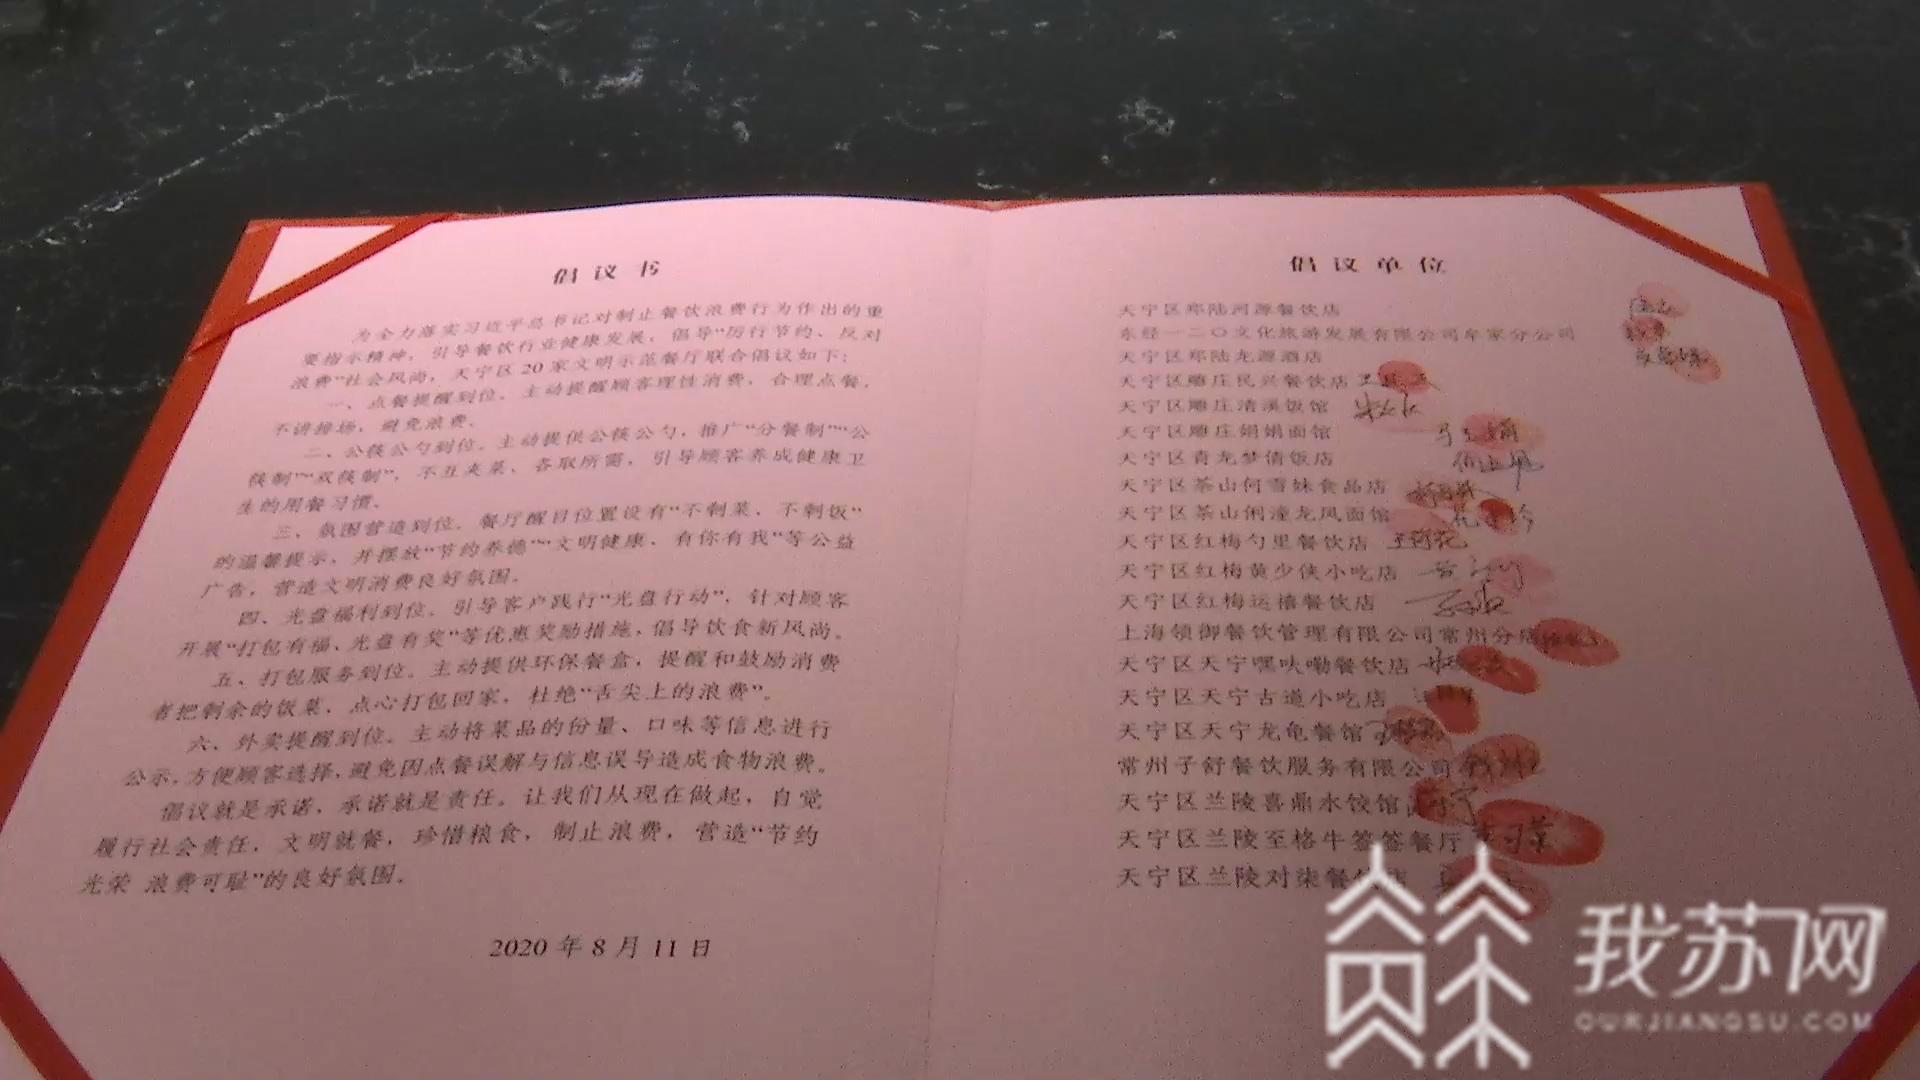 倡议书
为全力落实习近平总书记对制止餐饮浪费行为作出的重
要指示精神，引导餐饮行业健康发展，倡导“厉行节约、反对
浪费”社会风尚，天宁区20家文明示范餐厅联合倡议如下：
一、点餐提醒到位。主动提醒顾客理性消费，合理点餐，
不讲排场，避免浪费。
二、公筷公勺到位。主动提供公筷公勺，推广“分餐制”“公
筷制”“双筷制”，不互夹菜、各取所需，引导顾客养成健康卫
生的用餐习惯。
三、氛围营造到位。餐厅醒目位置设有“不剩菜、不剩饭”
的温馨提示，并摆放“节约养德”“文明健康、有你有我”等公益
广告，营造文明消费良好氛围。
四、光盘福利到位。引导客户践行“光盘行动”，针对顾客
开展“打包有福、光盘有奖”等优惠奖励措施，倡导饮食新风尚。
五、打包服务到位。主动提供环保餐盒，提醒和鼓励消费
者把剩余的饭菜、点心打包回家，杜绝“舌尖上的浪费”。
六、外卖提醒到位。主动将菜品的份量、口味等信息进行
公示，方便顾客选择，避免因点餐误解与信息误导造成食物浪费。
倡议就是承诺，承诺就是责任。让我们从现在做起，自觉
履行社会责任，文明就餐，珍惜粮食，制止浪费，营造“节约
光荣 浪费可耻”的良好氛围。
2020年8月11日
倡议单位
天宁区郑陆河源餐饮店
东经一二〇文化旅游发展有限公司牟家分公司
天宁区郑陆龙源酒店
天宁区雕庄民兴餐饮店
天宁区雕庄清溪饭馆
天宁区雕庄娟娟面馆
天宁区青龙梦倩饭店
天宁区茶山何雪妹食品店
天宁区茶山俐潼龙凤面馆
天宁区红梅勺里餐饮店
天宁区红梅黄少侠小吃店
天宁区红梅运禧餐饮店
上海领御餐饮管理有限公司常州分店
天宁区天宁嘿呋嘞餐饮店
天宁区天宁古道小吃店
天宁区天宁龙龟餐馆
常州子舒餐饮服务有限公司
天宁区兰陵喜鼎水饺馆
天宁区兰陵至格牛签签餐厅
天宁区兰陵对柒餐饮店
我苏网
OURJIANGSU.COM